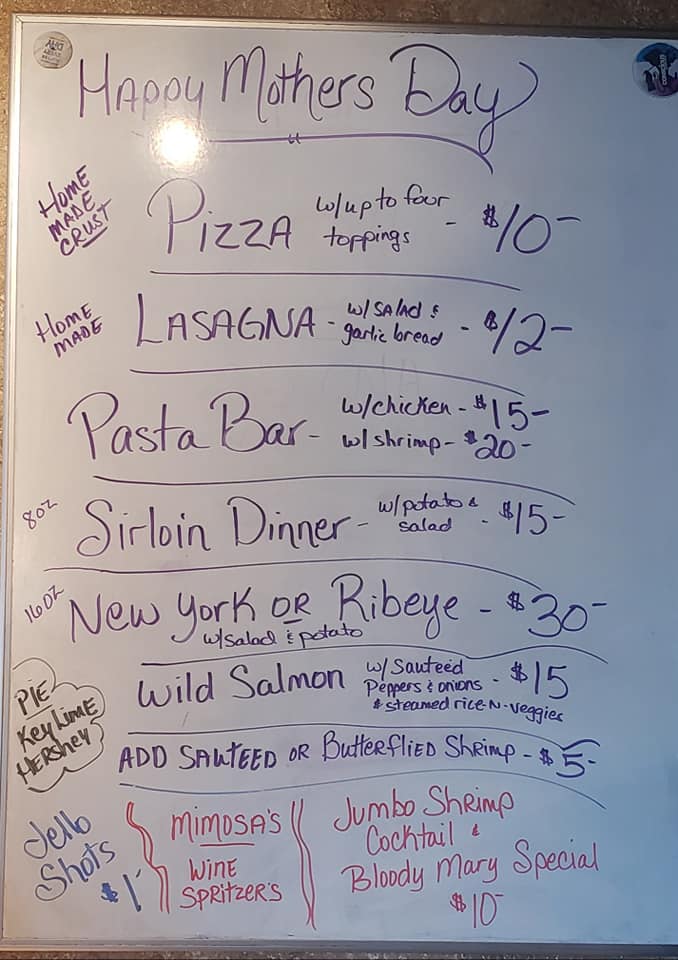 Happy Mothers Day
HOME
MADE
CRUST
PIZZA w/up to four toppings - $10-
HOME
MADE
LASAGNA - w/ SALAD & garlic bread - $12-
Pasta Bar - w/chicken - $15-
w/ shrimp - $20-
8oz Sirloin Dinner - w/potato & salad - $15-
16oz New York OR Ribeye - $30-
w/salad & potato
Wild Salmon w/ Sauteed Peppers & onions - $15
& steamed rice-N-veggies
PIE
Key Lime
Hershey
ADD SAUTEED OR Butterflied Shrimp - $5-
Jello
Shots
$1-
MIMOSA'S
WINE
SPRITZER'S
Jumbo Shrimp
Cocktail &
Bloody Mary Special
$10-